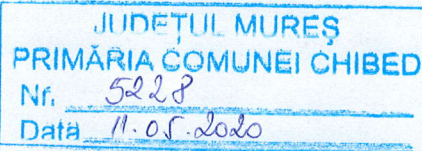 JUDEȚUL MUREȘ
PRIMĂRIA COMUNEI CHIBED
Nr. 5228
Data 11.05.2020